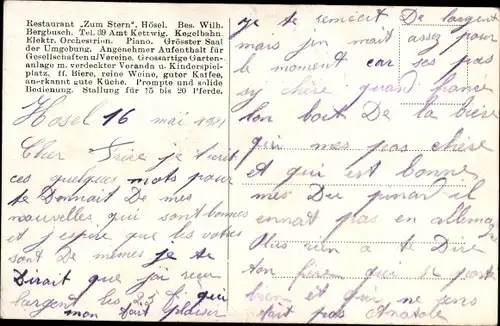 Restaurant „Zum Stern“, Hösel. Bes. Wilh.
Bergbusch. Tel. 39 Amt Kettwig. Kegelbahn.
Elektr. Orchestrion. Piano. Grösster Saal
der Umgebung. Angenehmer Aufenthalt für
Gesellschaften u. Vereine. Grossartige Garten-
anlage m. verdeckter Veranda u. Kinderspiel-
platz. ff. Biere, reine Weine, guter Kaffee,
anerkannt gute Küche. Prompte und solide
Bedienung. Stallung für 15 bis 20 Pferde.
Hosel 16 mai 1921
Cher je
ces quelques mots pour
te Donnait De mes
nouvelles qui sont bonnes
et j'espere que les votres
sont De mèmes je te
Dirait que j'ai recu
largent les 25 f qui
mon fait plaiser
je te remecit De largent
mais j'en ait assez pour
le moment car ses pas
sy chère quand france
lon boit De la bière
qui mes pas chère
et qui est bonne
mes Du pinar il
ennat pas en allemag
Plus rien a te Dire
ton frère qui se porte
bien et qui ne sens
fait pas Anatole